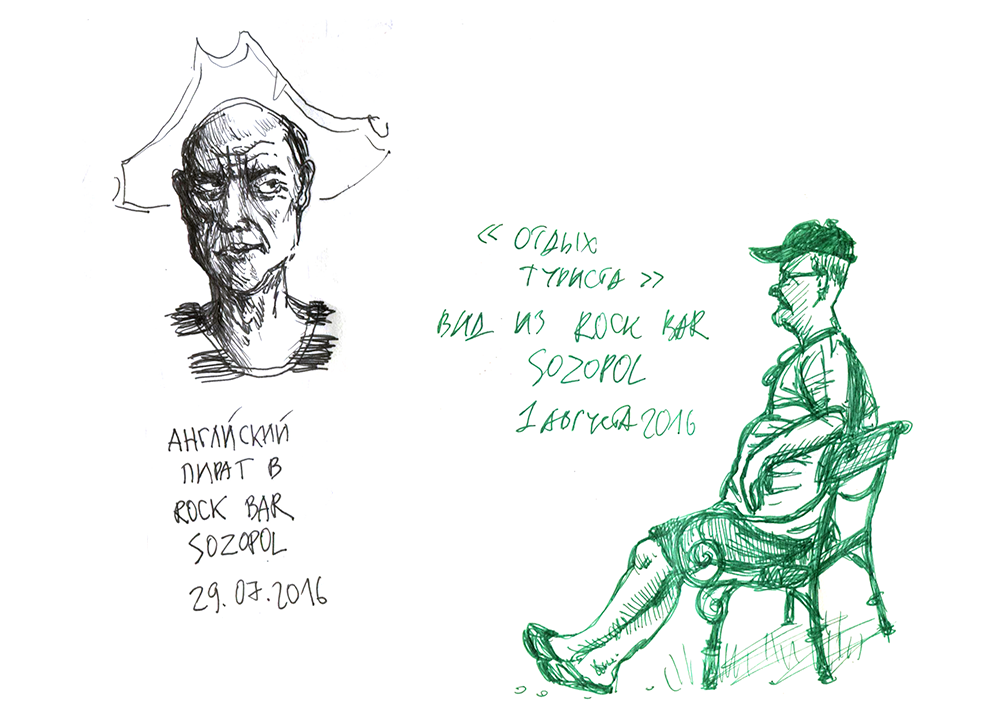 АНГЛИЙСКИЙ
ПИРАТ В
ROCK BAR
SOZOPOL
29.07.2016
« ОТДЫХ
ТУРИСТА »
ВИД ИЗ ROCK BAR
SOZOPOL
1 АВГУСТА 2016